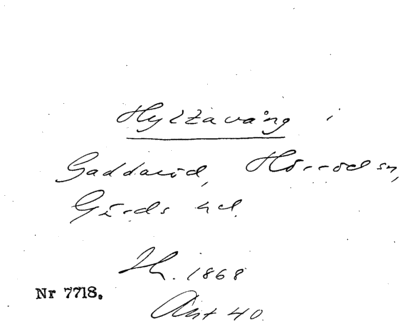 Hyltavång i
Gaddaröd, Hörröds sn,
Gärds hd.
Th. 1868
Nr 7718.
Ant 40